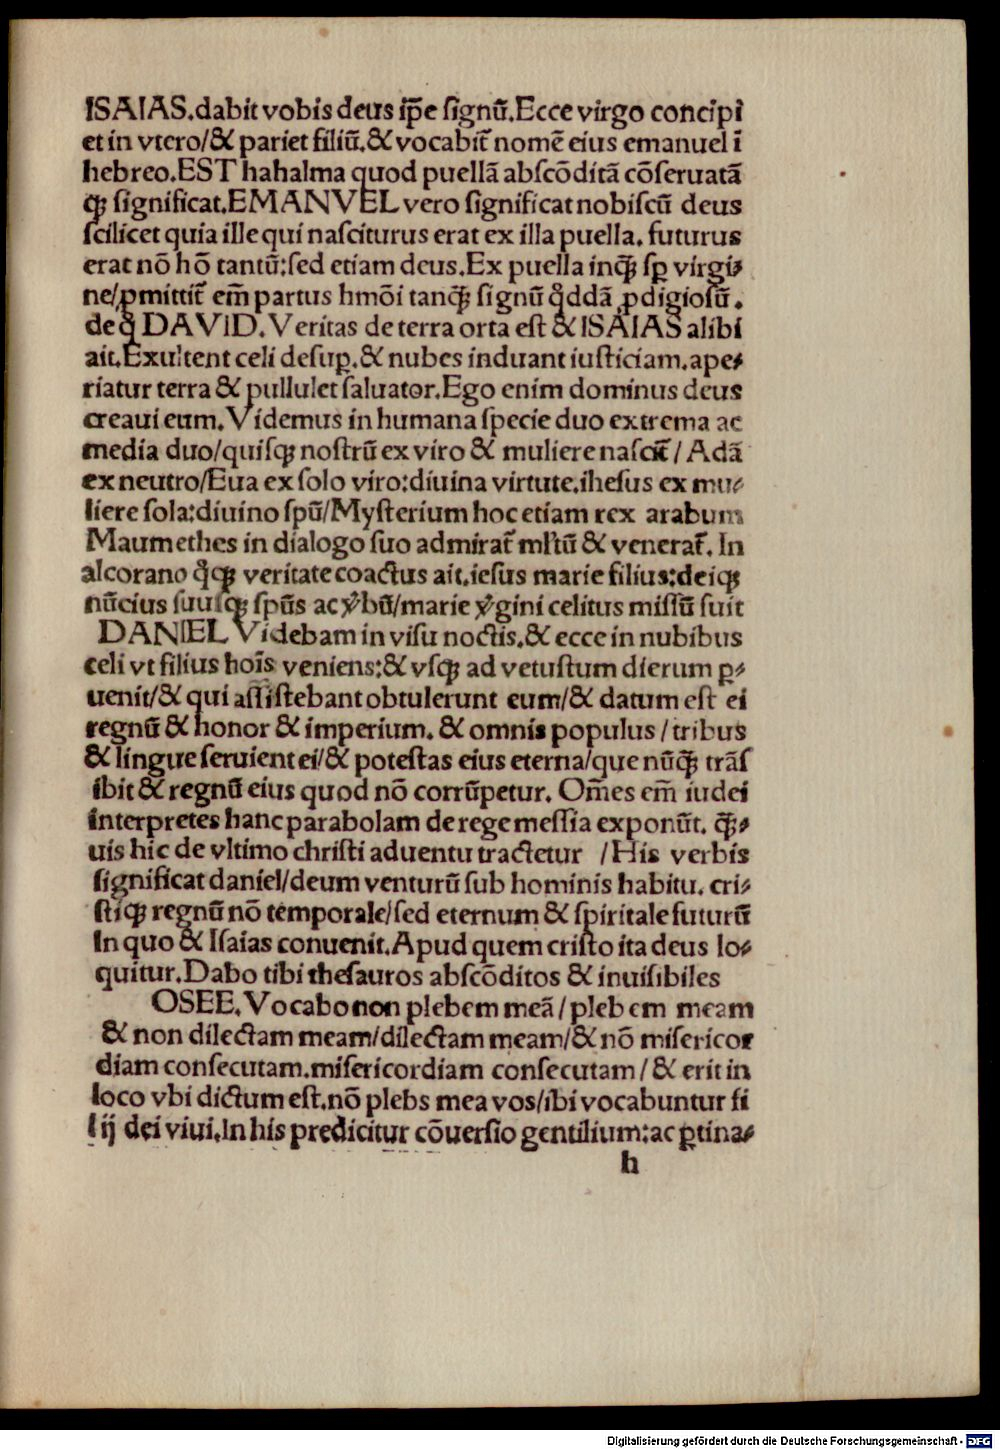 ISAIAS.dabit vobis deus ip̄e signū.Ecce virgo concipi
et in vtero/& pariet filiū.& vocabit᷑ nomē eius emanuel ī
hebreo.EST hahalma quod puellā abscōditā cōseruatā
qꝫ significat.EMANVEL vero significat nobiscū deus
scilicet quia ille qui nasciturus erat ex illa puella. futurus
erat nō hō tantū:sed etiam deus.Ex puella inqꝫ̄ sꝑ virgi⸗
ne/ꝓmittit᷑ em̄ partus hmōi tanqꝫ̄ signū qͥddā ꝓdigiosū.
de qͦ DAVID.Veritas de terra orta est & ISAIAS alibi
ait.Exultent celi desuꝑ.& nubes induant iusticiam.ape⸗
riatur terra & pullulet saluator.Ego enim dominus deus
creaui eum.Videmus in humana specie duo extrema ac
media duo/quisqꝫ nostrū ex viro & muliere nascit᷑/Adā
ex neutro/Eua ex solo viro:diuina virtute.ihesus ex mu⸗
liere sola:diuino spū/Mysterium hoc etiam rex arabum
Maumethes in dialogo suo admirat᷑ ml̄tū & venerat᷑. In
alcorano qͦqꝫ veritate coactus ait.iesus marie filius:deiqꝫ
nūcius suusqꝫ spūs ac v̓bū/marie v̓gini celitus missū fuit
DANIEL Videbam in visu noctis.& ecce in nubibus
celi vt filius hoīs veniens:& vsqꝫ ad vetustum dierum ꝑ⸗
uenit/& qui assistebant obtulerunt eum/& datum est ei
regnū & honor & imperium. & omnis populus/tribus
& lingue seruient ei/& potestas eius eterna/que nūqꝫ̄ trās
ibit & regnū eius quod nō corrūpetur. Om̄es em̄ iudei
interpretes hanc parabolam de rege messia exponūt. qꝫ̄⸗
uis hic de vltimo christi aduentu tractetur /His verbis
significat daniel/deum venturū sub hominis habitu. cri⸗
stiqꝫ regnū nō temporale/sed eternum & spiritale futurū
In quo & Isaias conuenit.Apud quem cristo ita deus lo⸗
quitur.Dabo tibi thesauros abscōditos & inuisibiles
OSEE.Vocabo non plebem meā/plebem meam
& non dilectam meam/dilectam meam/& nō misericor
diam consecutam.misericordiam consecutam/& erit in
loco vbi dictum est.nō plebs mea vos/ibi vocabuntur fi
lij dei viui.In his predicitur cōuersio gentilium:ac ꝑtina⸗
h
Digitalisierung gefördert durch die Deutsche Forschungsgemeinschaft - DFG